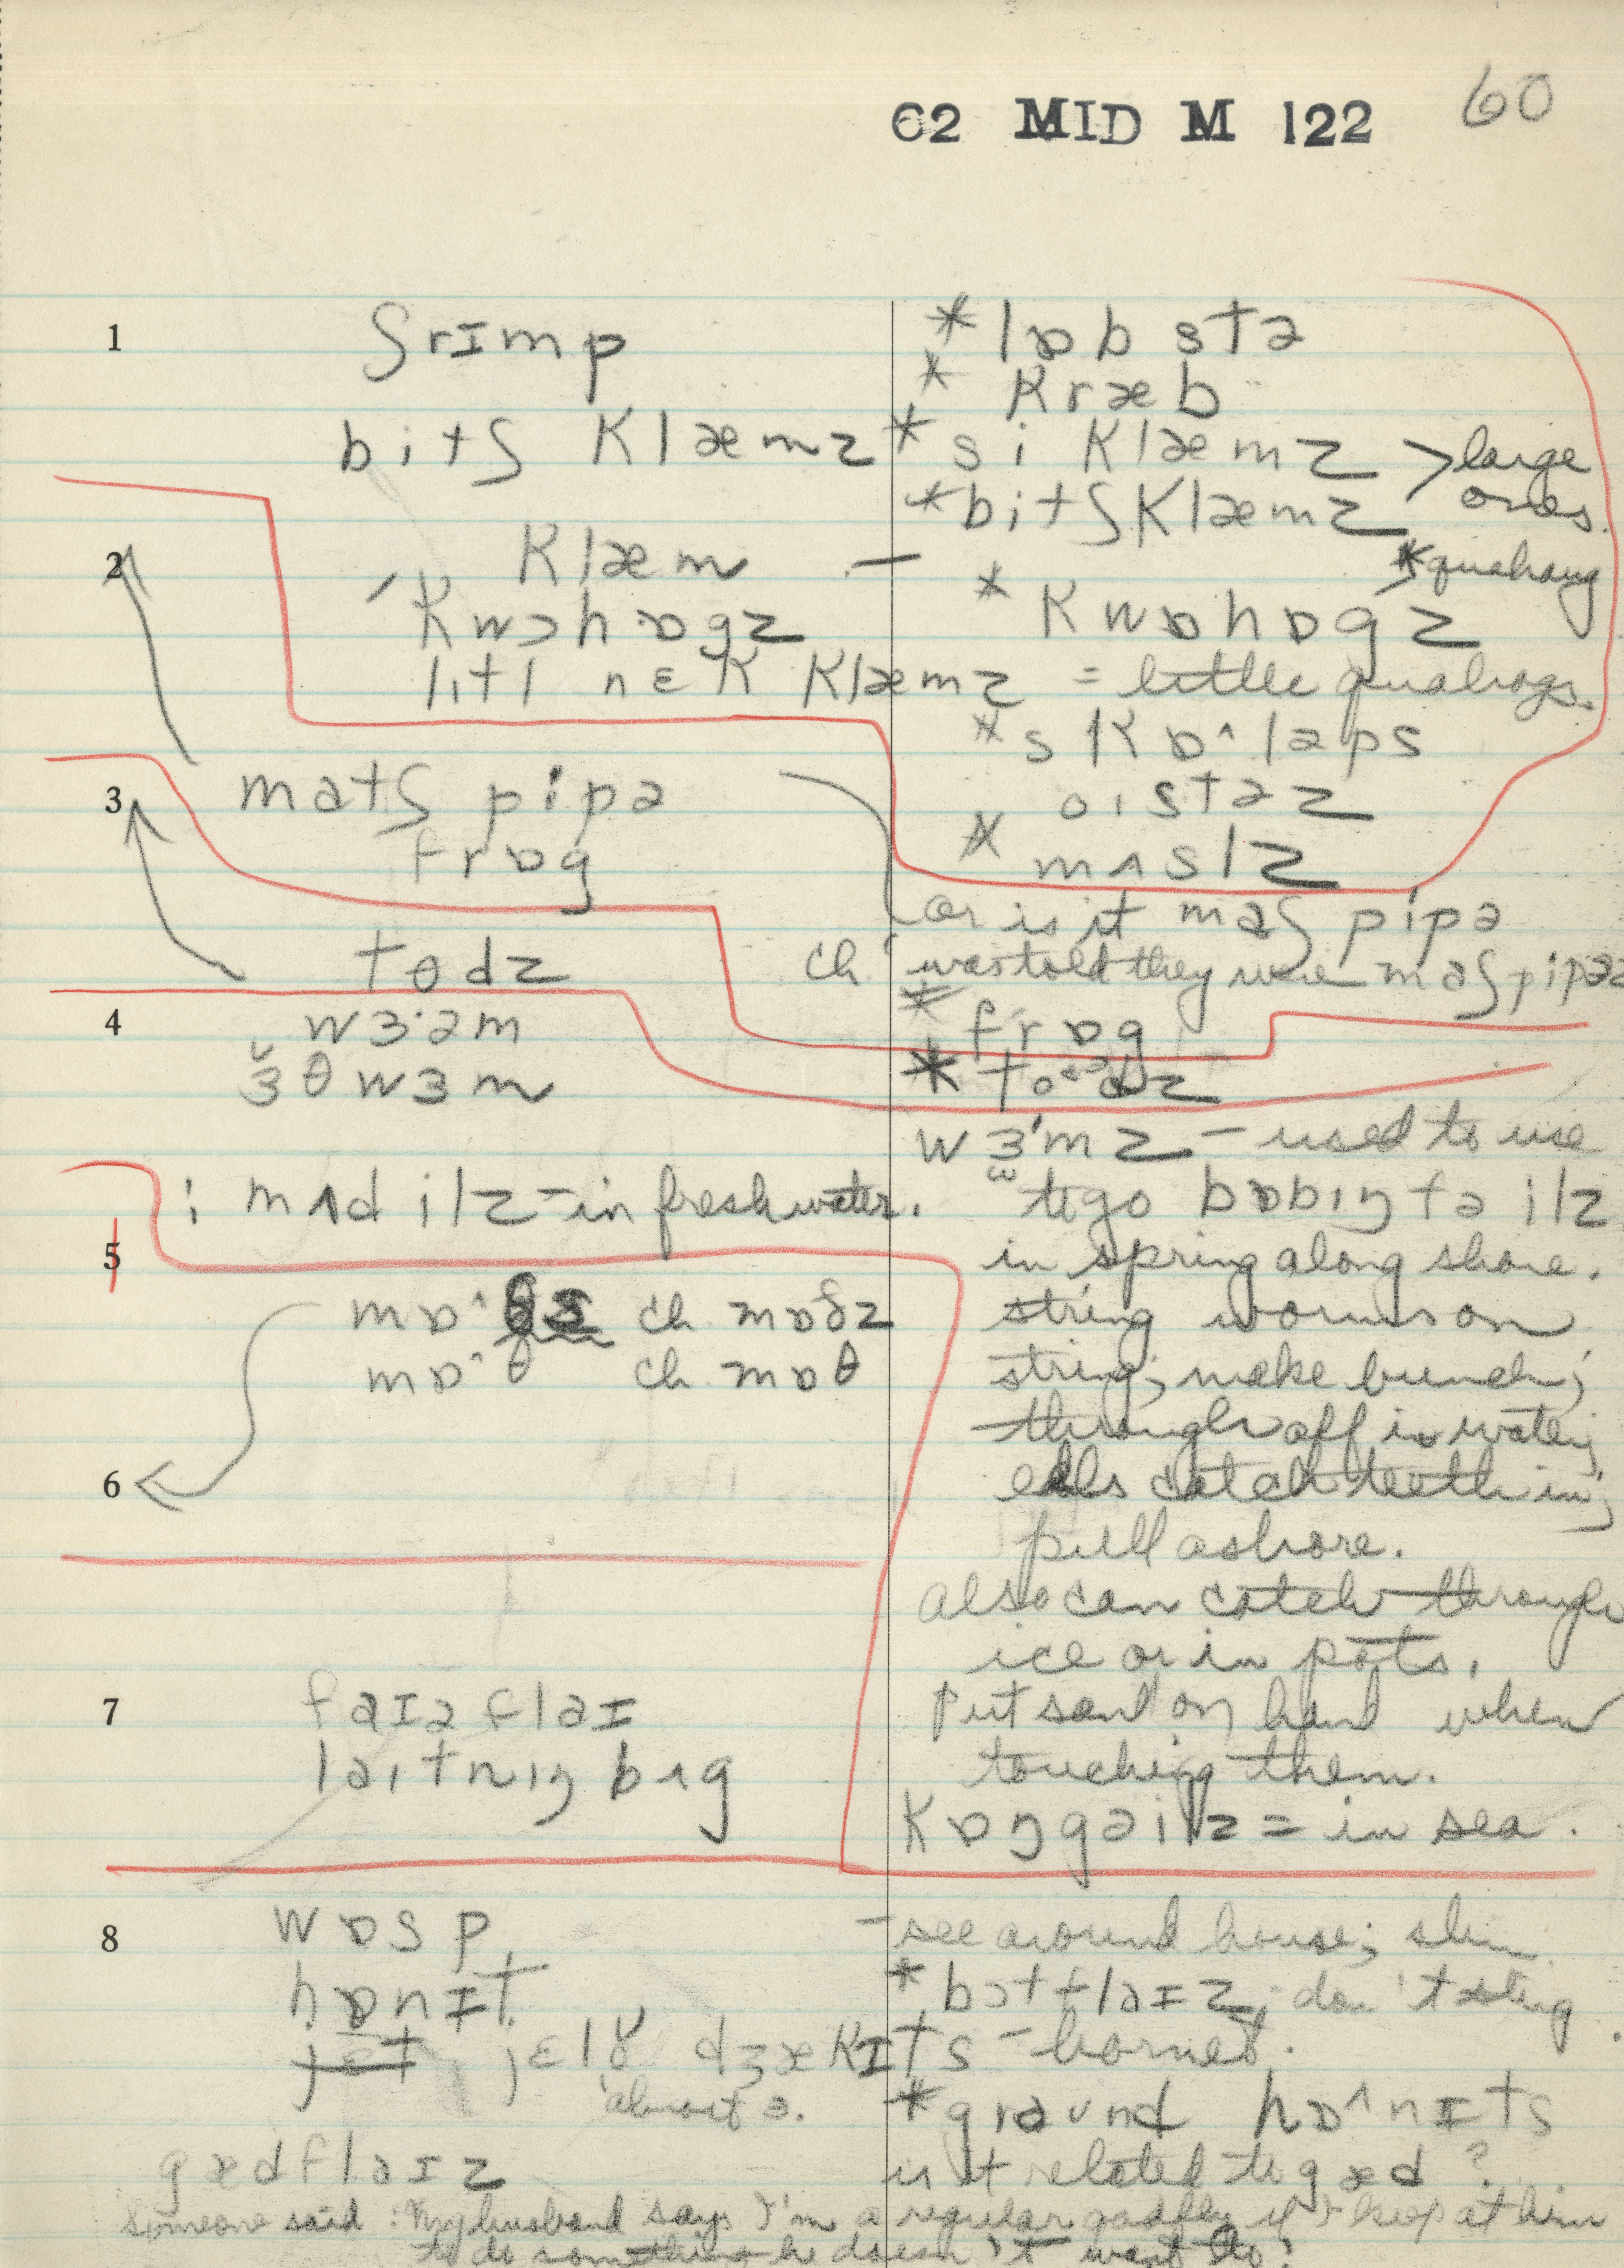 62 MID M 122 60
1 ʃrɪmp
bitʃ klæmz
2 klæm —
kwɔhɒgz
lɪtl nɛk klæmz = little quahogs.
*lɒbstə
*kræb
*si klæmz > large
*bitʃklæmz ones.
*quahaug
*kwɒhɒgz
*skɒ^ləps
oɪstəz
*mʌslz
3 matʃ pipə
frɒg
or is it maʃ pipə
ch was told they were maʃpipəz
*frɒg
tɵdz
*to
4 wɜ·əm
ɜθwɜm
i mʌd ilz – in fresh water.
wɜmz – used to use
to go bɒbɪŋ fə ilz
in spring along shore.
string worms on
string; make bunch;
through off in water;
eels catch teeth in;
pull ashore.
also can catch through
ice or in pots.
Put sand on hand when
touching them.
kɒŋgəilz = in sea.
5
mɒ^ ch mɒðz
mɒ^θ ch mɒθ
6
7 faɪəflaɪ
laɪtnɪŋ bʌg
8 wɒsp – see around house; slim
hɒnɪt *bɔtflaɪz; don't sting
jɛt jɛlɤ dʒækɪts – hornet.
almost ɜ.
*graʊnd hɒ^nɪts
gædflaɪz is it related to gæd?
Someone said: My husband says I'm a regular gadfly if I keep at him
to do something he doesn't want to.